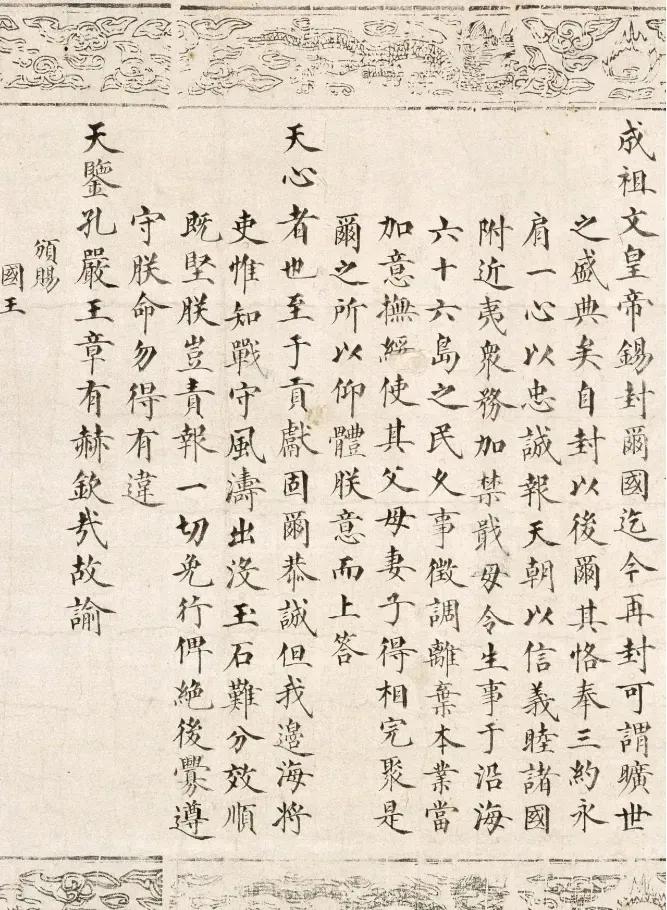 成祖文皇帝錫封爾國迄今再封可謂曠世
之盛典矣自封以後爾其恪奉三約永
肩一心以忠誠報天朝以信義睦諸國
附近夷衆務加禁戢毋令生事于沿海
六十六島之民久事徵調離棄本業當
加意撫綏使其父母妻子得相完聚是
爾之所以仰體朕意而上答
天心者也至于貢獻固爾恭誠但我邊海將
吏惟知戰守風濤出沒玉石難分效順
既堅朕豈責報一切免行俾絕後釁遵
守朕命勿得有違
天鑒孔嚴王章有赫欽哉故諭
頒賜
國王